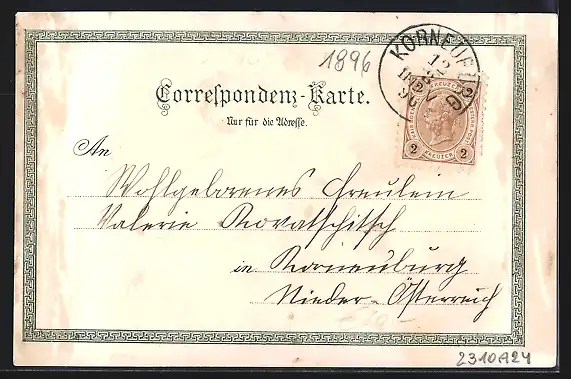 1896
KORNEUBURG
12
96
Correspondenz-Karte.
Nur für die Adresse.
KREUZER
2 KREUZER 2
An
Wohlgeborenes Freulein
Valerie Kovatschitsch
in Korneuburg
Nieder-Österreich
2310A24